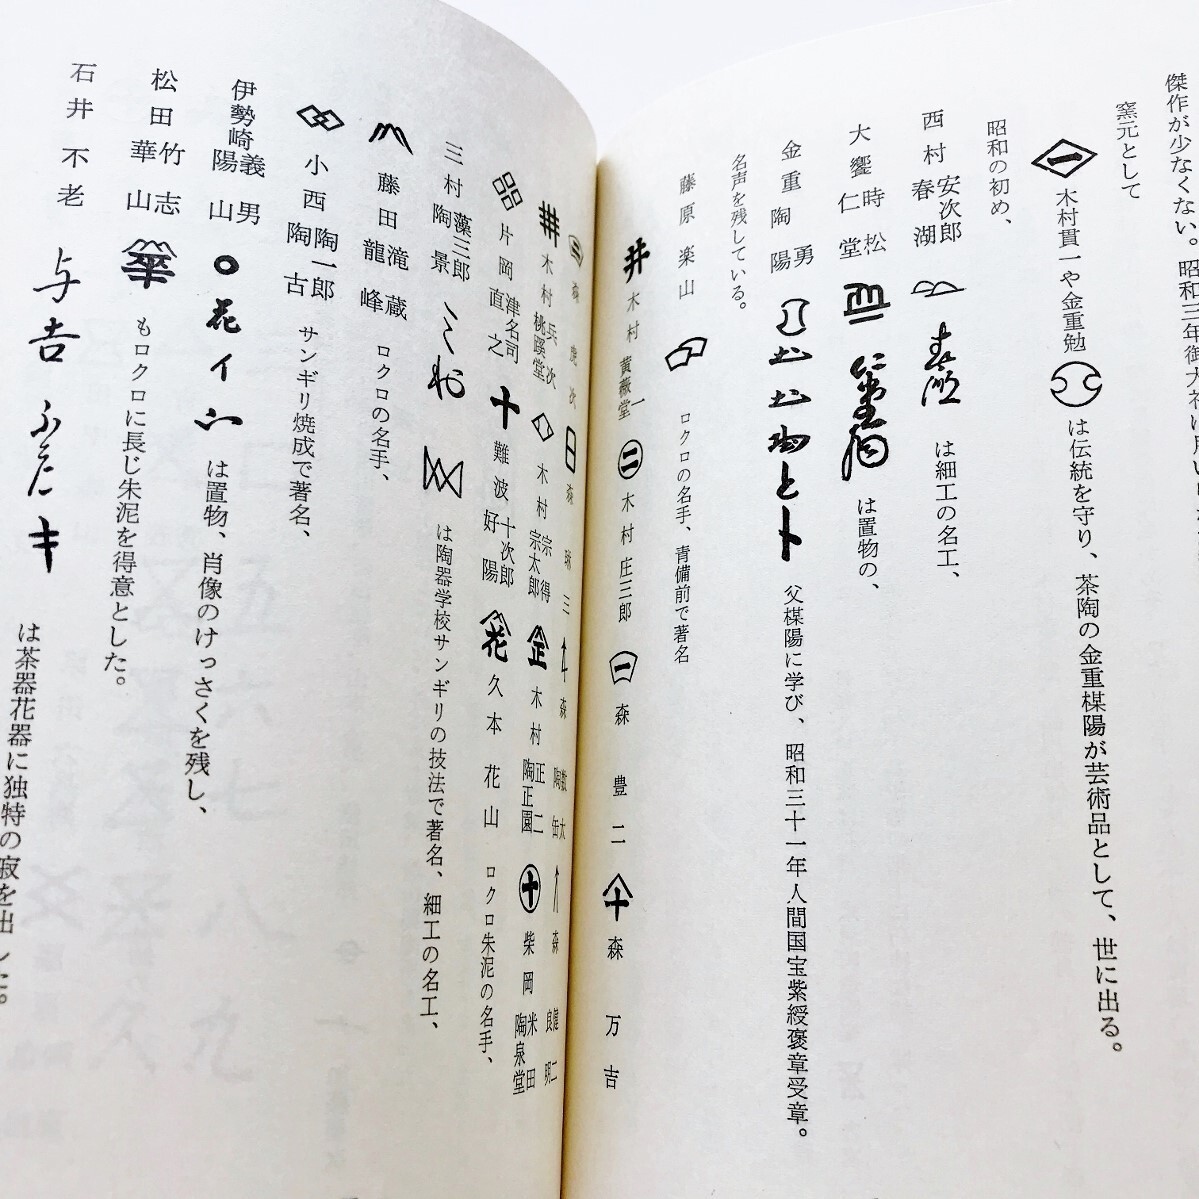 傑作が少なくない。昭和三年御大
窯元として
木村貫一や金重勉 は伝統を守り、茶陶の金重楳陽が芸術品として、世に出る。
昭和の初め、
西村 安次郎 春湖 は細工の名工、
大饗 時松 仁堂 は置物の、
金重 勇 陶陽 父楳陽に学び、昭和三十一年人間国宝紫綬褒章受章。
名声を残している。
藤原楽山 ロクロの名手、青備前で著名
木村 一 黄薇堂 木村庄三郎 森豊二 森万吉
虎次 森 琢三 森 森 健二 良明
木村 兵次 桃蹊堂 木村 宗得 宗太郎 木村 正二 陶正園 柴岡 米田 陶泉堂
片岡 津名司 直之 難波 十次郎 好陽 久本花山 ロクロ朱泥の名手、
三村 藻三郎 陶景 は陶器学校サンギリの技法で著名、細工の名工、
藤田 滝蔵 龍峰 ロクロの名手、
小西 陶一郎 陶古 サンギリ焼成で著名、
伊勢崎 義男 陽山 は置物、肖像のけっさくを残し、
松田 竹志 華山 もロクロに長じ朱泥を得意とした。
石井不老 は茶器花器に独特の寂を出した。